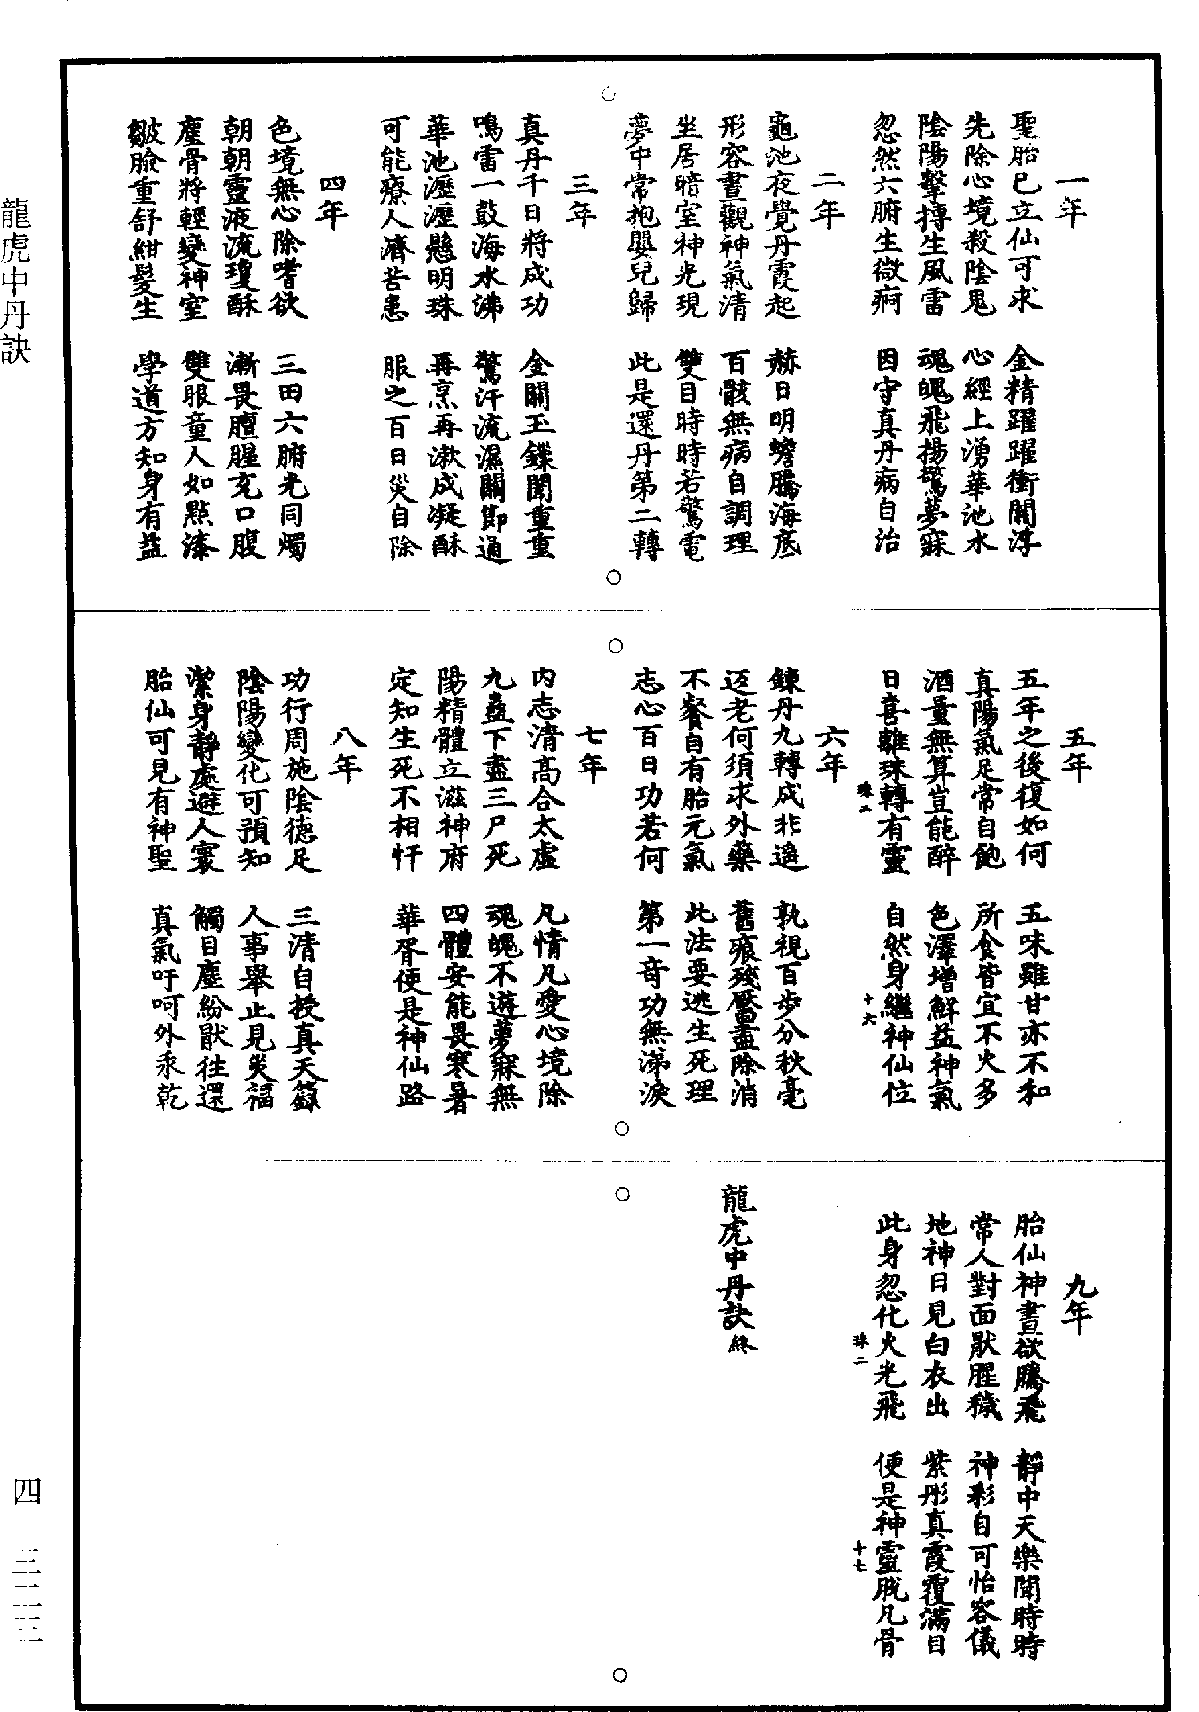 一年
聖胎已立仙可求　金精躍躍衝關浮
先除心境殺陰鬼　心經上湧華池水
陰陽擊搏生風雷　魂魄飛揚驚夢寐
忽然六腑生微痾　因守真丹病自治
二年
龜池夜覺丹霞起　赫日明蟾騰海底
形容晝觀神氣清　百骸無病自調理
坐居暗室神光現　雙目時時若驚電
夢中常抱嬰兒歸　此是還丹第二轉
三年
真丹千日將成功　金關玉鏁閉重重
鳴雷一鼓海水沸　驚汗流濕關節通
華池瀝瀝懸明珠　再烹再漱成凝酥
可能療人濟苦患　服之百日災自除
四年
色境無心除嗜欲　三田六腑光同燭
朝朝靈液流瓊酥　漸畏膻腥充口腹
塵骨將輕變神室　雙眼童人如點漆
皺臉重舒紺髮生　學道方知身有益
五年
五年之後復如何　五味雖甘亦不和
真陽氣足常自飽　所食皆宜不火多
酒量無算豈能醉　色澤增鮮益神氣
日喜離珠轉有靈　自然身繼神仙位
珠二　十六
六年
鍊丹九轉成非遥　孰視百步分秋毫
返老何須求外藥　舊痕殘靨盡除消
不餐自有胎元氣　此法要逃生死理
志心百日功若何　第一奇功無涕淚
七年
内志清高合太虛　凡情凡愛心境除
九蟲下盡三尸死　魂魄不遊夢寐無
陽精體立滋神府　四體安能畏寒暑
定知生死不相忓　華胥便是神仙路
八年
功行周施陰德足　三清自授真天籙
陰陽變化可預知　人事舉止見災福
潔身靜處避人寰　觸目塵紛猒往還
胎仙可見有神聖　真氣吁呵外汞乾
九年
胎仙神晝欲騰飛　靜中天樂聞時時
常人對面猒腥穢　神彩自可怡容儀
地神日見白衣出　紫彤真霞覆滿目
此身忽化火光飛　便是神靈脱凡骨
珠二　十七
龍虎中丹訣終
龍虎中丹訣
四　三二三